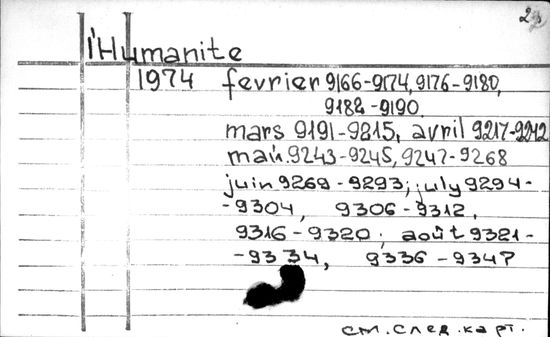 22
l'Humanite
1974 fevrier 9166-9174, 9176-9180,
9182-9190
mars 9191-9215, avril 9217-9242
mai 9243-9245, 9247-9268
juin 9269-9293; july 9294-
-9304, 9306-9312,
9316-9320; août 9321-
-9334, 9336-9347
см. след. карт.